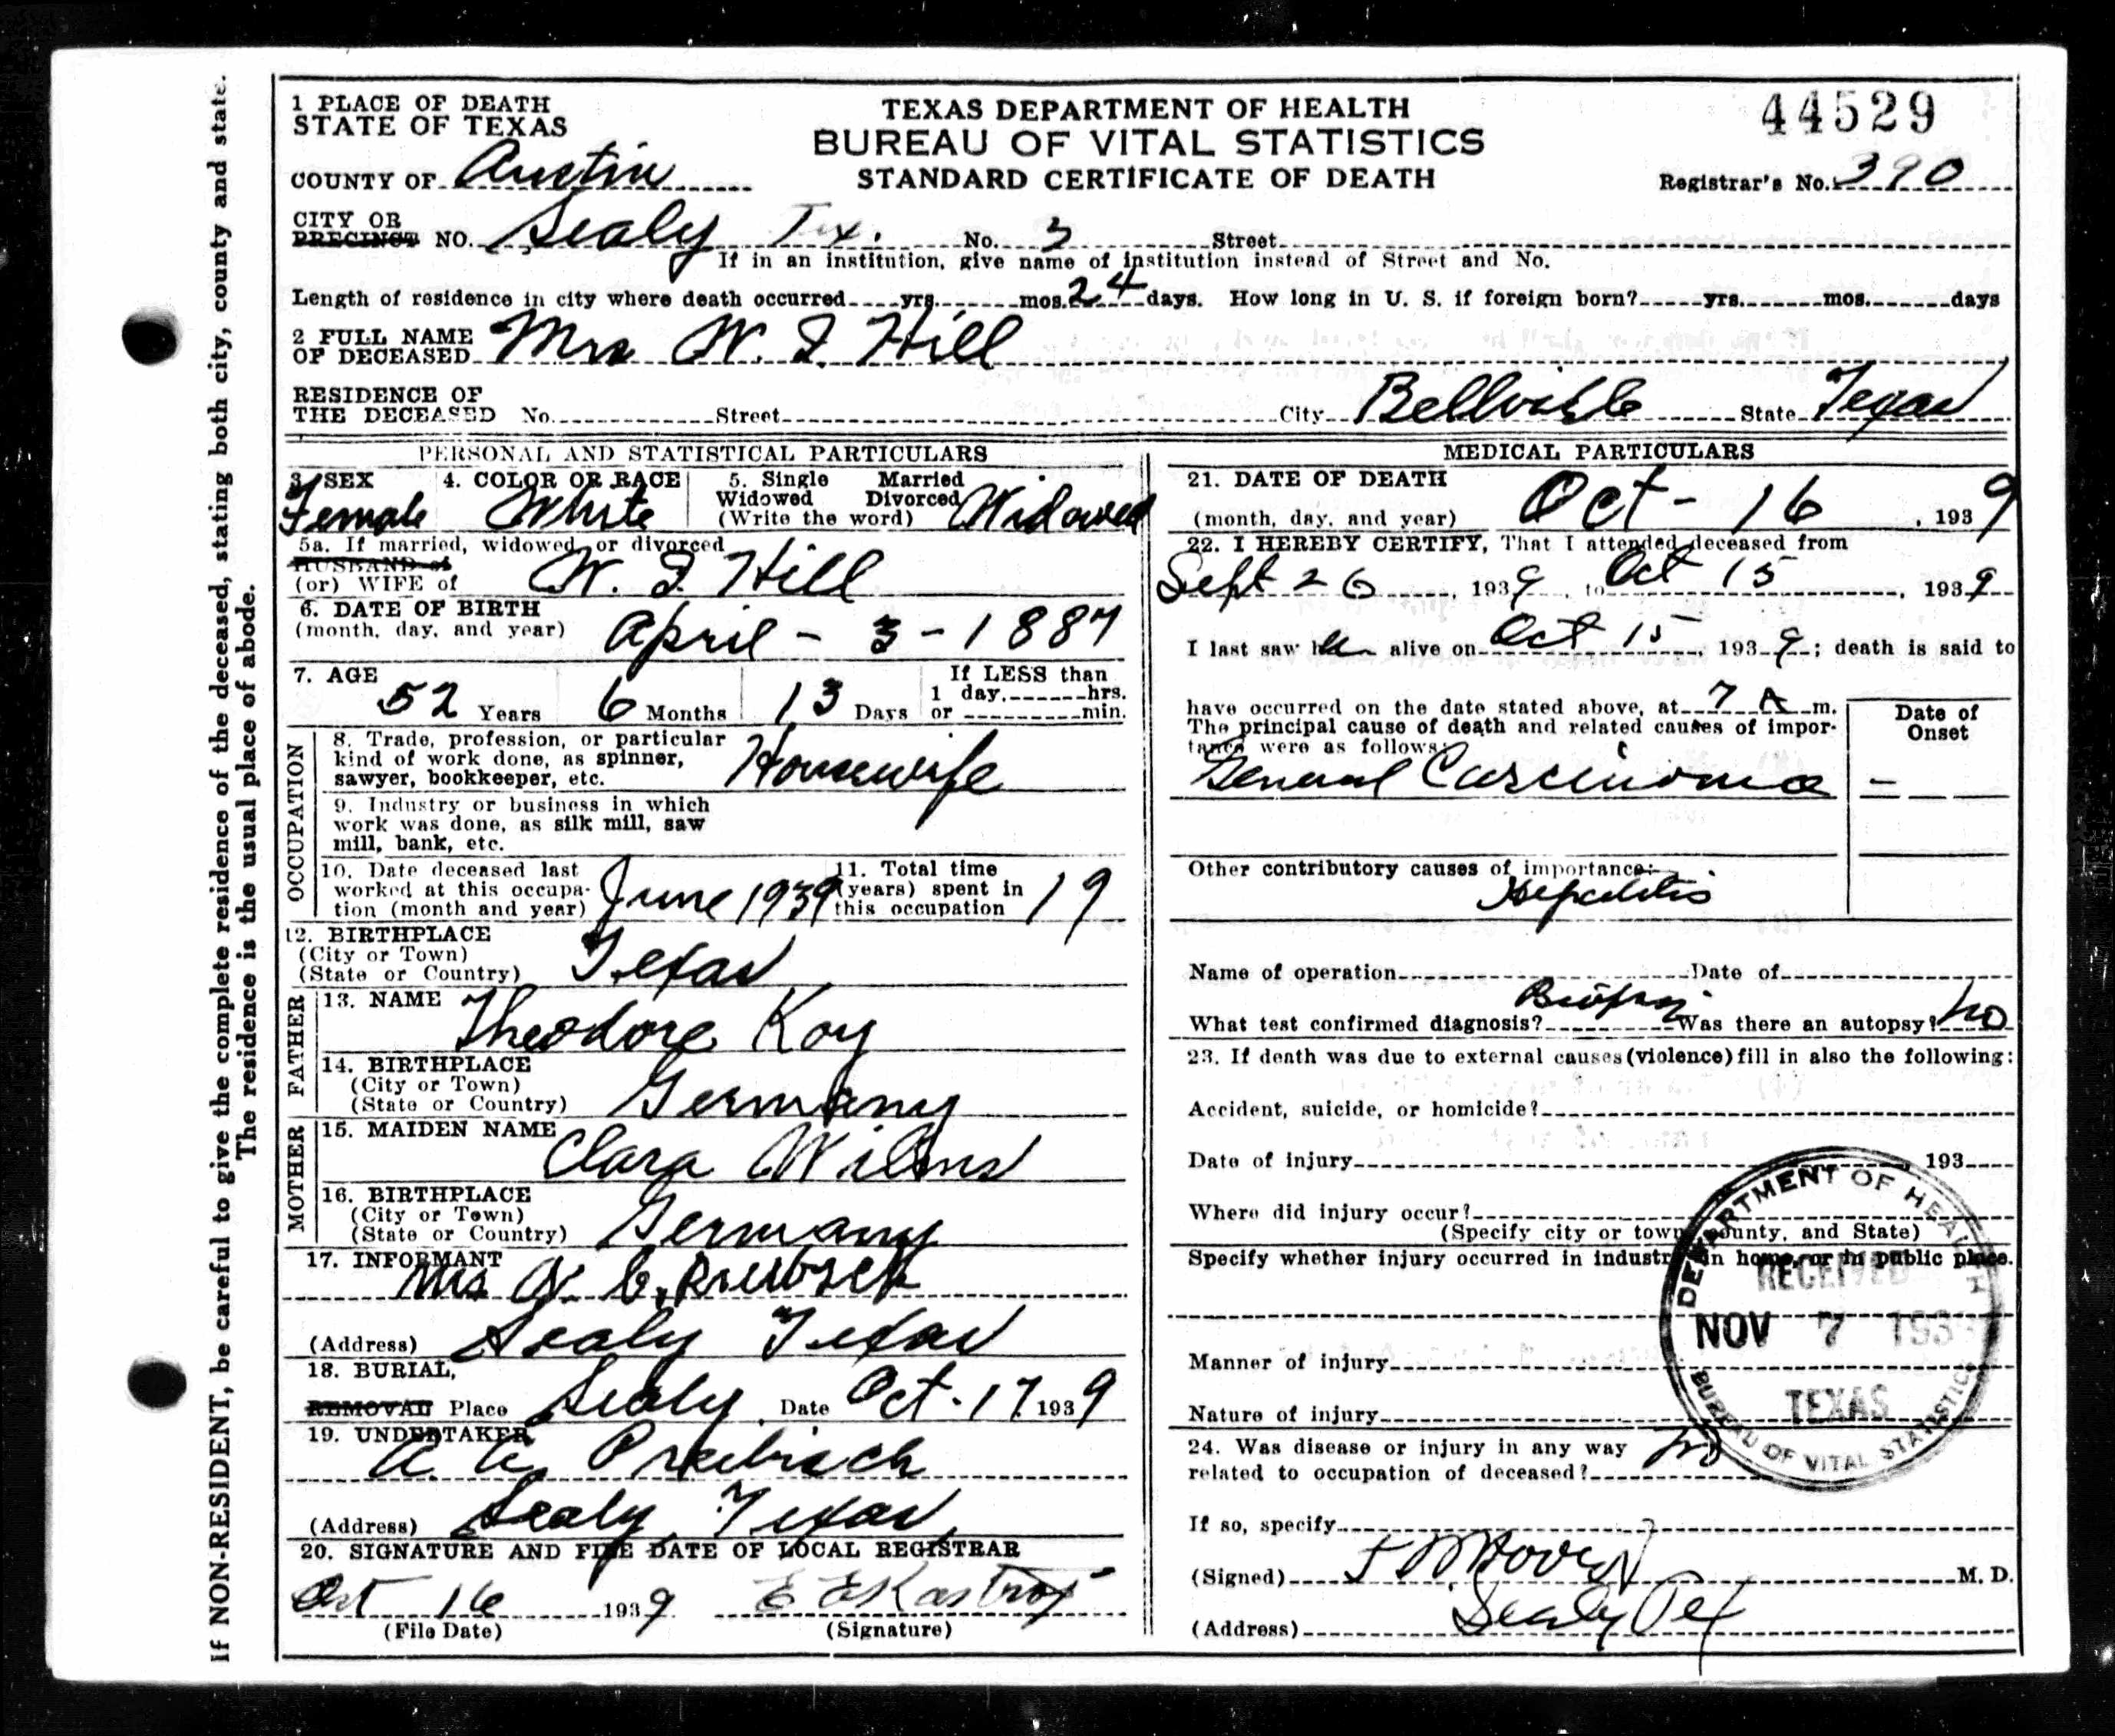 If NON-RESIDENT, be careful to give the complete residence of the deceased, stating both city, county and state.
The residence is the usual place of abode.
1 PLACE OF DEATH
STATE OF TEXAS
COUNTY OF Austin
TEXAS DEPARTMENT OF HEALTH
BUREAU OF VITAL STATISTICS
STANDARD CERTIFICATE OF DEATH
44529
Registrar's No. 390
CITY OR
PRECINCT NO. Sealy Tex. No. 3 Street
If in an institution, give name of institution instead of Street and No.
Length of residence in city where death occurred yrs. mos. 24 days. How long in U. S. if foreign born? yrs. mos. days
2 FULL NAME
OF DECEASED Mrs W. I. Hill
RESIDENCE OF
THE DECEASED No. Street City Bellville State Texas
PERSONAL AND STATISTICAL PARTICULARS
3. SEX Female
4. COLOR OR RACE White
5. Single Married
Widowed Divorced
(Write the word) Widowed
5a. If married, widowed or divorced
HUSBAND of
(or) WIFE of W. I. Hill
6. DATE OF BIRTH
(month, day, and year) April - 3 - 1887
7. AGE
52 Years 6 Months 13 Days
If LESS than
1 day, hrs.
or min.
OCCUPATION
8. Trade, profession, or particular
kind of work done, as spinner,
sawyer, bookkeeper, etc. Housewife
9. Industry or business in which
work was done, as silk mill, saw
mill, bank, etc.
10. Date deceased last
worked at this occupa-
tion (month and year) June 1939
11. Total time
(years) spent in
this occupation 19
12. BIRTHPLACE
(City or Town)
(State or Country) Texas
FATHER
13. NAME Theodore Koy
14. BIRTHPLACE
(City or Town)
(State or Country) Germany
MOTHER
15. MAIDEN NAME Clara Wilms
16. BIRTHPLACE
(City or Town)
(State or Country) Germany
17. INFORMANT
Mrs A. C. Preibisch
(Address) Sealy Texas
18. BURIAL,
REMOVAL Place Sealy Date Oct. 17 1939
19. UNDERTAKER
A. C. Preibisch
(Address) Sealy, Texas
20. SIGNATURE AND FILE DATE OF LOCAL REGISTRAR
Oct 16 1939
(File Date) (Signature)
MEDICAL PARTICULARS
21. DATE OF DEATH
(month, day, and year) Oct - 16, 1939
22. I HEREBY CERTIFY, That I attended deceased from
Sept 26, 1939, to Oct 15, 1939
I last saw her alive on Oct 15, 1939; death is said to
have occurred on the date stated above, at 7 A m.
The principal cause of death and related causes of impor-
tance were as follows:
General Carcinoma
Date of
Onset
-
Other contributory causes of importance:
Hepatitis
Name of operation Date of
What test confirmed diagnosis? Biopsy Was there an autopsy? No
23. If death was due to external causes (violence) fill in also the following:
Accident, suicide, or homicide?
Date of injury , 193
Where did injury occur?
(Specify city or town, county, and State)
Specify whether injury occurred in industry, in home, or in public place.
Manner of injury
Nature of injury
24. Was disease or injury in any way
related to occupation of deceased? No
If so, specify
(Signed) M. D.
(Address) Sealy Tex
DEPARTMENT OF HEALTH
RECEIVED
NOV 7 193
TEXAS
BUREAU OF VITAL STATISTICS